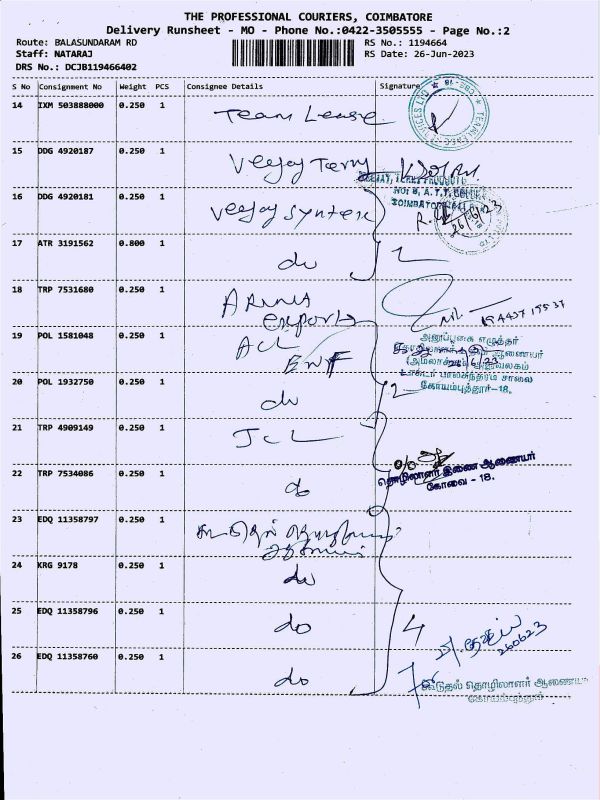 THE PROFESSIONAL COURIERS, COIMBATORE
Delivery Runsheet - MO - Phone No.:0422-3505555 - Page No.:2
Route: BALASUNDARAM RD
RS No.: 1194664
Staff: NATARAJ
RS Date: 26-Jun-2023
DRS No.: DCJB119466402
S No Consignment No Weight PCS Consignee Details Signature
14 IXM 503888000 0.250 1 Team Lease
15 DDG 4920187 0.250 1 Veejay Terry
16 DDG 4920181 0.250 1 Veejay Syntex
NO: 8, A.T.T.
COIMBATORE
26/6/23
17 ATR 3191562 0.800 1 do 2
18 TRP 7531680 0.250 1 Aruna
exports
19 POL 1581048 0.250 1 ACL
ENF
அனுப்புகை எழுத்தர்
26/6/23
டாக்டர் பாலசுந்தரம் சாலை
கோயம்புத்தூர்-18.
20 POL 1932750 0.250 1 do 2
21 TRP 4909149 0.250 1 JCL
22 TRP 7534086 0.250 1 do
தொழிலாளர் இணை ஆணையர்
கோவை - 18.
23 EDQ 11358797 0.250 1
24 KRG 9178 0.250 1 do
25 EDQ 11358796 0.250 1 do 4
260623
26 EDQ 11358760 0.250 1 do
கூடுதல் தொழிலாளர் ஆணையர்
கோயம்புத்தூர்